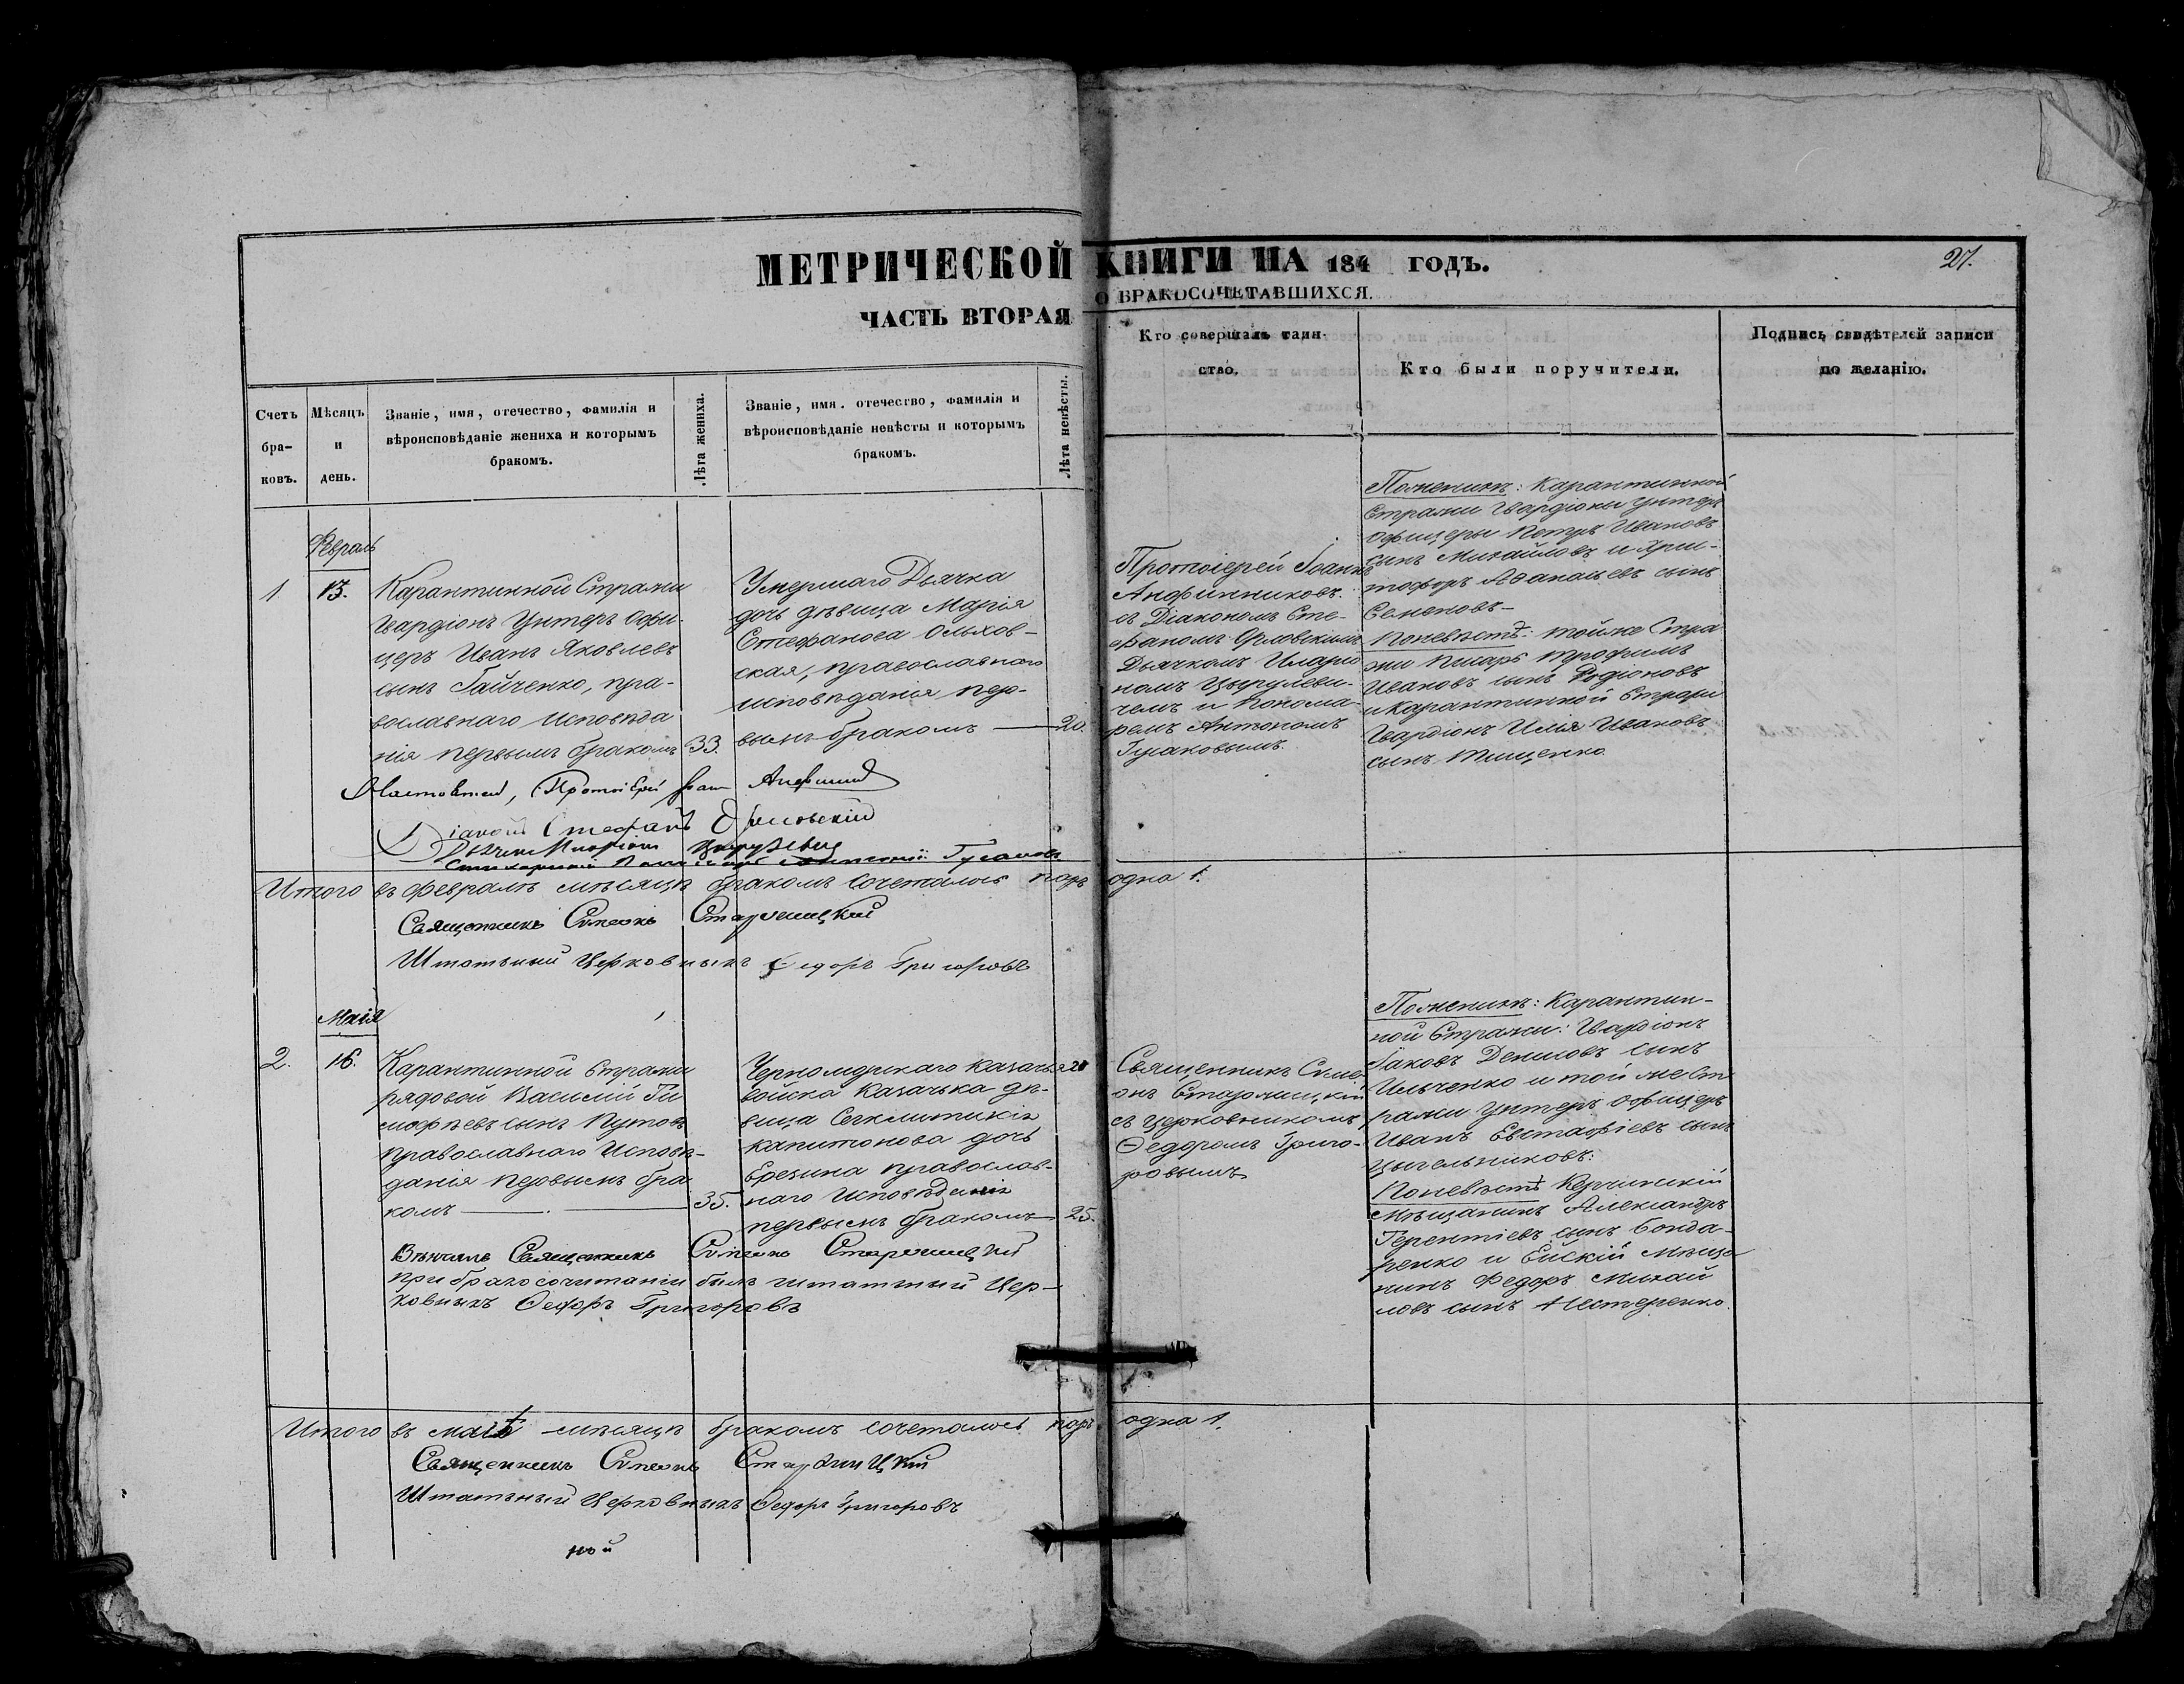 МЕТРИЧЕСКОЙ КНИГИ НА 184 ГОДЪ.
27.
ЧАСТЬ ВТОРАЯ О БРАКОСОЧЕТАВШИХСЯ.
Счетъ
бра-
ковъ.
Мѣсяцъ
и
день.
Званіе, имя, отечество, фамилія и
вѣроисповѣданіе жениха и которымъ
бракомъ.
Лѣта жениха.
Званіе, имя. отечество, фамилія и
вѣроисповѣданіе невѣсты и которымъ
бракомъ.
Лѣта невѣсты.
Кто совершалъ таин-
ство.
Кто были поручители.
Подпись свидѣтелей записи
по желанію.
Февраль
1
13.
Карантинной Стражи
Гвардіонъ Унтеръ Офи-
церъ Иванъ Яковлевъ
сынъ Гайченко, пра-
вославнаго исповѣда
нія первымъ бракомъ
33.
Умершаго Дьячка
дочь дѣвица Марія
Стефанова Ольхов-
ская, православнаго
исповѣданія пер-
вымъ бракомъ
20.
Протоіерей Іоаннъ
Анфинниковъ
съ Діакономъ Сте-
фаномъ Орловскимъ
Дьячкомъ Иларіо
номъ Цырулеви-
чемъ и Понома-
ремъ Антономъ
Гусаковымъ.
Поженихѣ: Карантинной
Стражи Гвардіоны Унтеръ
Офицеры Петръ Ивановъ
сынъ Михайловъ и Хрис-
тофоръ Афанасьевъ сынъ
Семеновъ
Поневѣстѣ: тойже Стра
жи Писарь Трофимъ
Ивановъ сынъ Родіоновъ
и Карантинной Стражи
Гвардіонъ Илія Ивановъ
сынъ Тищенко
Настоятель, Протоіерей
Діаконъ Стефанъ Орловскій
Итого въ Февралѣ мѣсяцѣ бракомъ сочеталось паръ одна 1.
Священникъ Симеонъ Старжицкій
Штатный Церковникъ Ѳедоръ Григоровъ
Маія
2.
16.
Карантинной Стражи
рядовой Василій Ти
мофѣевъ сынъ Путовъ
православнаго Исповѣ-
данія первымъ бра
комъ
35.
Черноморскаго Казачья
войска Казачька дѣ-
вица
Капитонова дочь
Ерезина православ-
наго Исповѣданія
первымъ бракомъ
25.
Священникъ Симе
онъ Старжицкій
съ церковникомъ
Ѳедоромъ Григо-
ровымъ
Поженихѣ: Карантин-
ной Стражи: Гвардіонъ
Іаковъ Денисовъ сынъ
Ильченко и той же Ст
ражи Унтеръ Офицеръ
Иванъ Евстафіевъ сынъ
Цыгельниковъ:
Поневѣстѣ Керчинскій
Мѣщанинъ Александръ
Терентіевъ сынъ Бонда-
ренко и Ейскій Мѣща
нинъ Федоръ Михай
ловъ сынъ Нестеренко.
Вѣнчалъ Священникъ Симеонъ Старжицкій
при бракосочитаніи былъ штатный Цер-
ковникъ Ѳедоръ Григоровъ
Итого въ маіѣ мѣсяцѣ бракомъ сочеталось паръ одна 1.
Священникъ Симеонъ Старжицкій
Штатный Церковникъ Ѳедоръ Григоровъ
ной